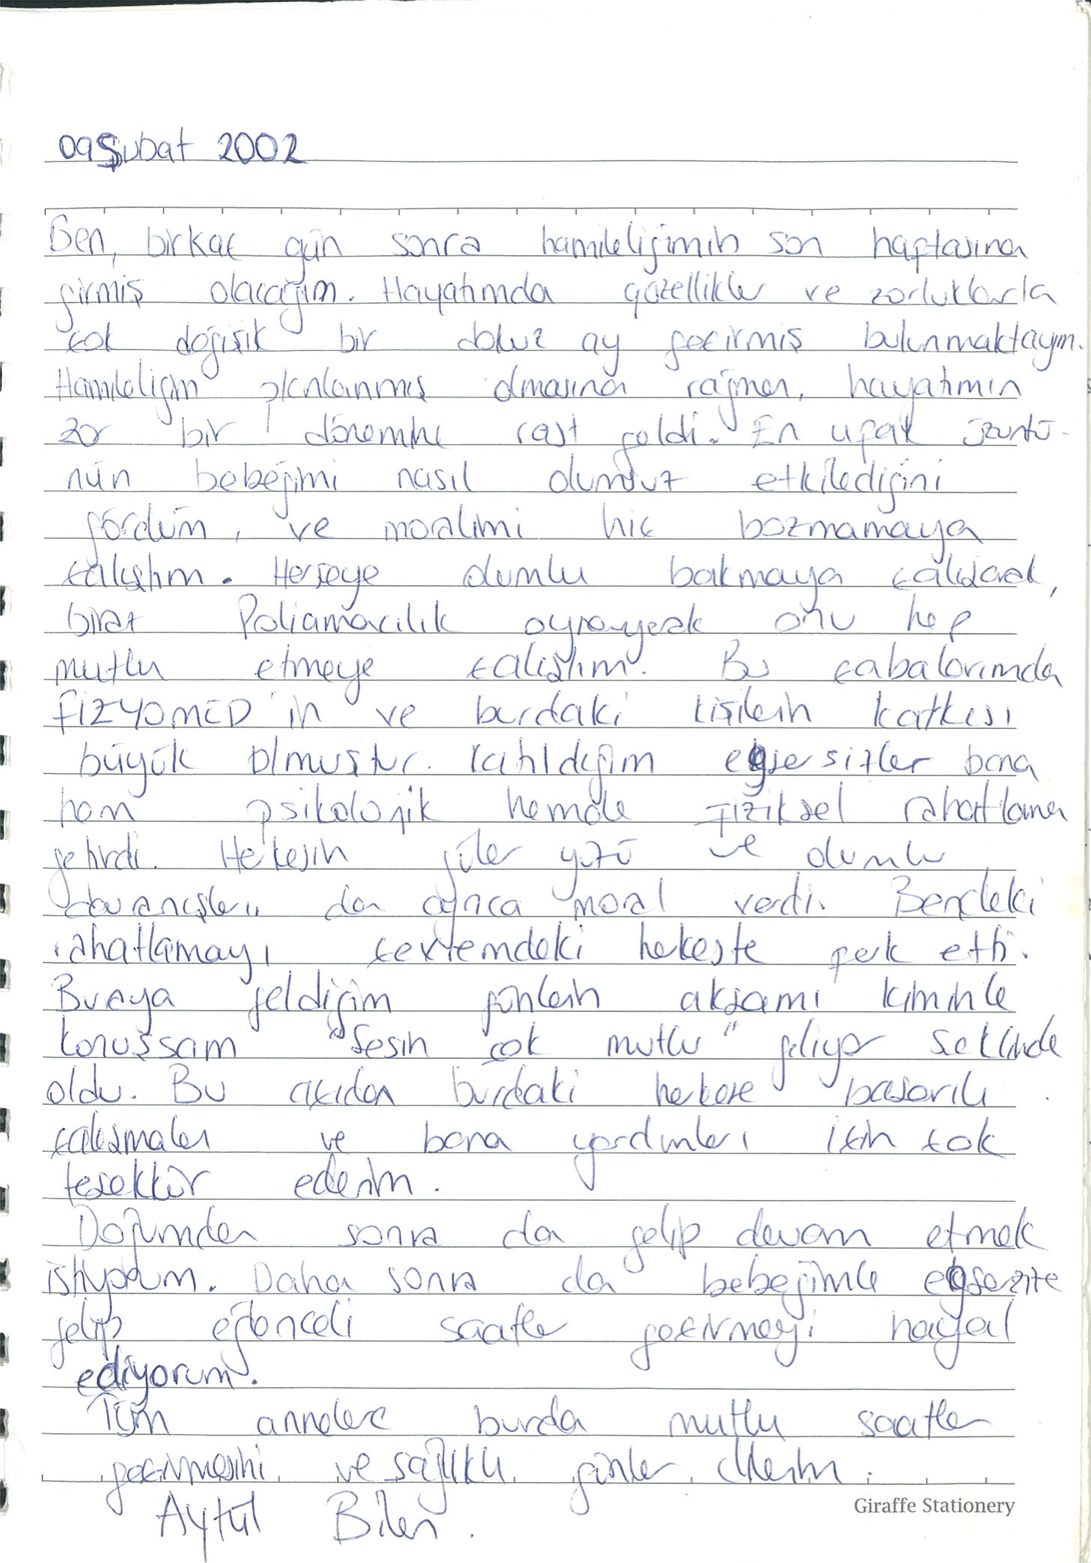 09 Şubat 2002
Ben, birkaç gün sonra hamileliğimin son haftasına
girmiş olacağım. Hayatımda güzellikler ve zorluklarla
çok değişik bir dokuz ay geçirmiş bulunmaktayım.
Hamileliğim planlanmış olmasına rağmen, hayatımın
zor bir dönemine rast geldi. En ufak üzüntü-
nün bebeğimi nasıl olumsuz etkilediğini
gördüm, ve moralimi hiç bozmamaya
çalıştım. Herşeye olumlu bakmaya çalışarak,
biraz Poliamacılık oynayarak onu hep
mutlu etmeye çalıştım. Bu çabalarımda
FİZYOMED'in ve burdaki kişilerin katkısı
büyük olmuştur. Katıldığım egsersizler bana
hem psikolojik hemde fiziksel rahatlama
getirdi. Herkesin güler yüzü ve olumlu
davranışları da ayrıca moral verdi. Bendeki
rahatlamayı çevremdeki herkeste fark etti.
Buraya geldiğim günlerin akşamı kiminle
konuşsam "Sesin çok mutlu" geliyor şeklinde
oldu. Bu açıdan burdaki herkese başarılı
çalışmaları ve bana yardımları için çok
teşekkür ederim.
Doğumdan sonra da gelip devam etmek
istiyorum. Daha sonra da bebeğimle egsersize
gelip eğlenceli saatler geçirmeyi hayal
ediyorum.
Tüm annelere burda mutlu saatler
geçirmesini ve sağlıklı günler dilerim.
Aytül Bilen.
Giraffe Stationery